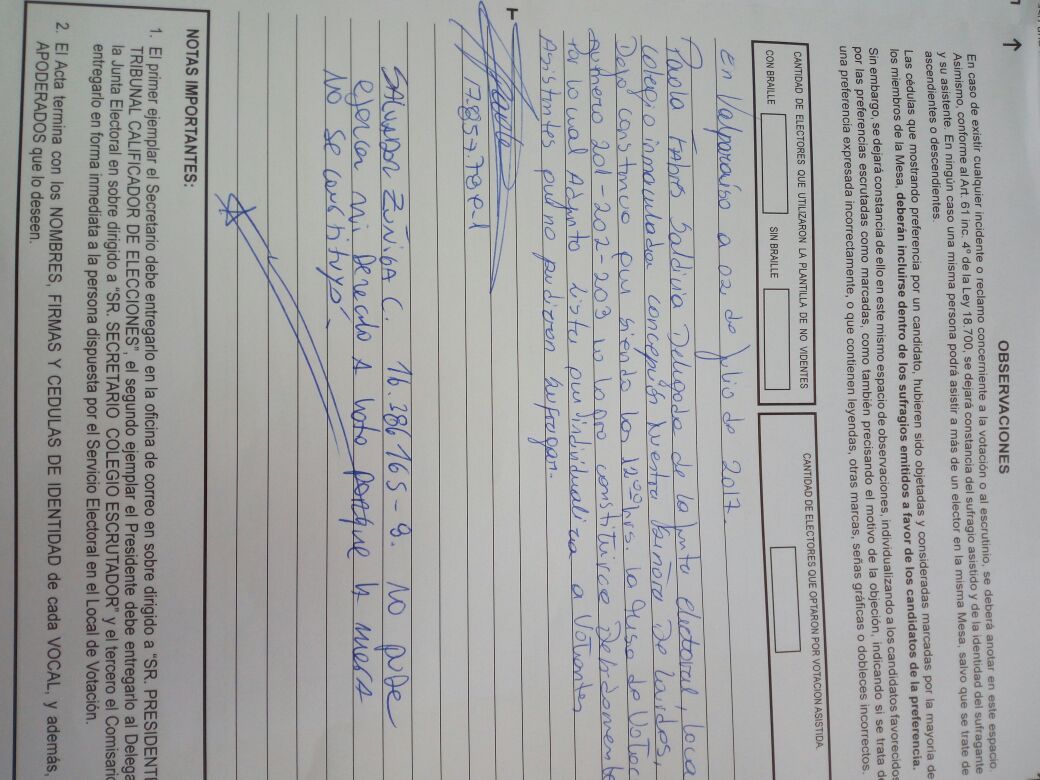 OBSERVACIONES
En caso de existir cualquier incidente o reclamo concerniente a la votación o al escrutinio, se deberá anotar en este espacio.
Asimismo, conforme al Art. 61 inc. 4° de la Ley 18.700, se dejará constancia del sufragio asistido y de la identidad del sufragante
y su asistente. En ningún caso una misma persona podrá asistir a más de un elector en la misma Mesa, salvo que se trate de
ascendientes o descendientes.
Las cédulas que mostrando preferencia por un candidato, hubieren sido objetadas y consideradas marcadas por la mayoría de
los miembros de la Mesa, deberán incluirse dentro de los sufragios emitidos a favor de los candidatos de la preferencia.
Sin embargo, se dejará constancia de ello en este mismo espacio de observaciones, individualizando a los candidatos favorecidos
por las preferencias escrutadas como marcadas, como también precisando el motivo de la objeción, indicando si se trata de
una preferencia expresada incorrectamente, o que contienen leyendas, otras marcas, señas gráficas o dobleces incorrectos.
CANTIDAD DE ELECTORES QUE UTILIZARON LA PLANTILLA DE NO VIDENTES
CON BRAILLE
SIN BRAILLE
CANTIDAD DE ELECTORES QUE OPTARON POR VOTACION ASISTIDA
En Valparaíso a 02 de Julio de 2017.
Paola Fabres Saldivia Delegada de la junta electoral, loca
Colegio inmaculada concepción nuestra Señora De Lourdes,
Dejo constancia que siendo las 12:00 hrs. la Mesa de Votac
número 201-202-203 no logro constituirse Debidamente
por lo cual Adjunto lista que individualiza a Votantes
Asistentes que no pudieron sufragar.
17.857.789-1
SALVADOR ZÚÑIGA C. 16.386165-9. NO pude
ejercer mi derecho A voto porque la mesa
No se constituyó.
NOTAS IMPORTANTES:
1. El primer ejemplar el Secretario debe entregarlo en la oficina de correo en sobre dirigido a "SR. PRESIDENT
TRIBUNAL CALIFICADOR DE ELECCIONES", el segundo ejemplar el Presidente debe entregarlo al Delega
la Junta Electoral en sobre dirigido a "SR. SECRETARIO COLEGIO ESCRUTADOR" y el tercero el Comisario
entregarlo en forma inmediata a la persona dispuesta por el Servicio Electoral en el Local de Votación.
2. El Acta termina con los NOMBRES, FIRMAS Y CEDULAS DE IDENTIDAD de cada VOCAL, y además,
APODERADOS que lo deseen.